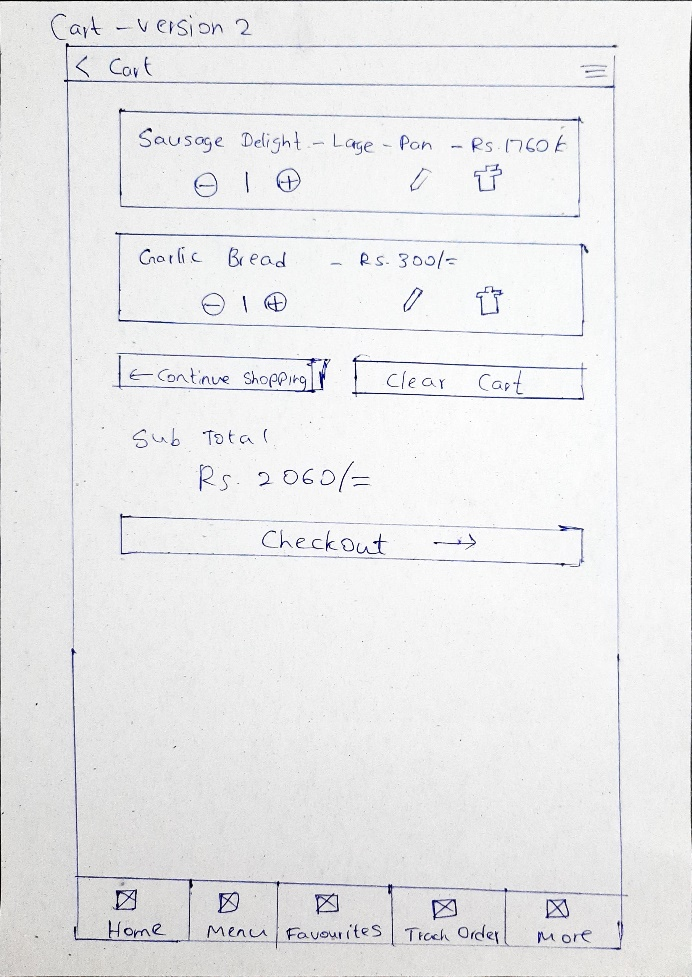 Cart - version 2
< Cart
Sausage Delight - Lage - Pan - Rs. 1760/=
1
Garlic Bread - Rs. 300/=
1
← Continue Shopping Clear Cart
Sub Total
Rs. 2060/=
Checkout →
Home Menu Favourites Track Order More